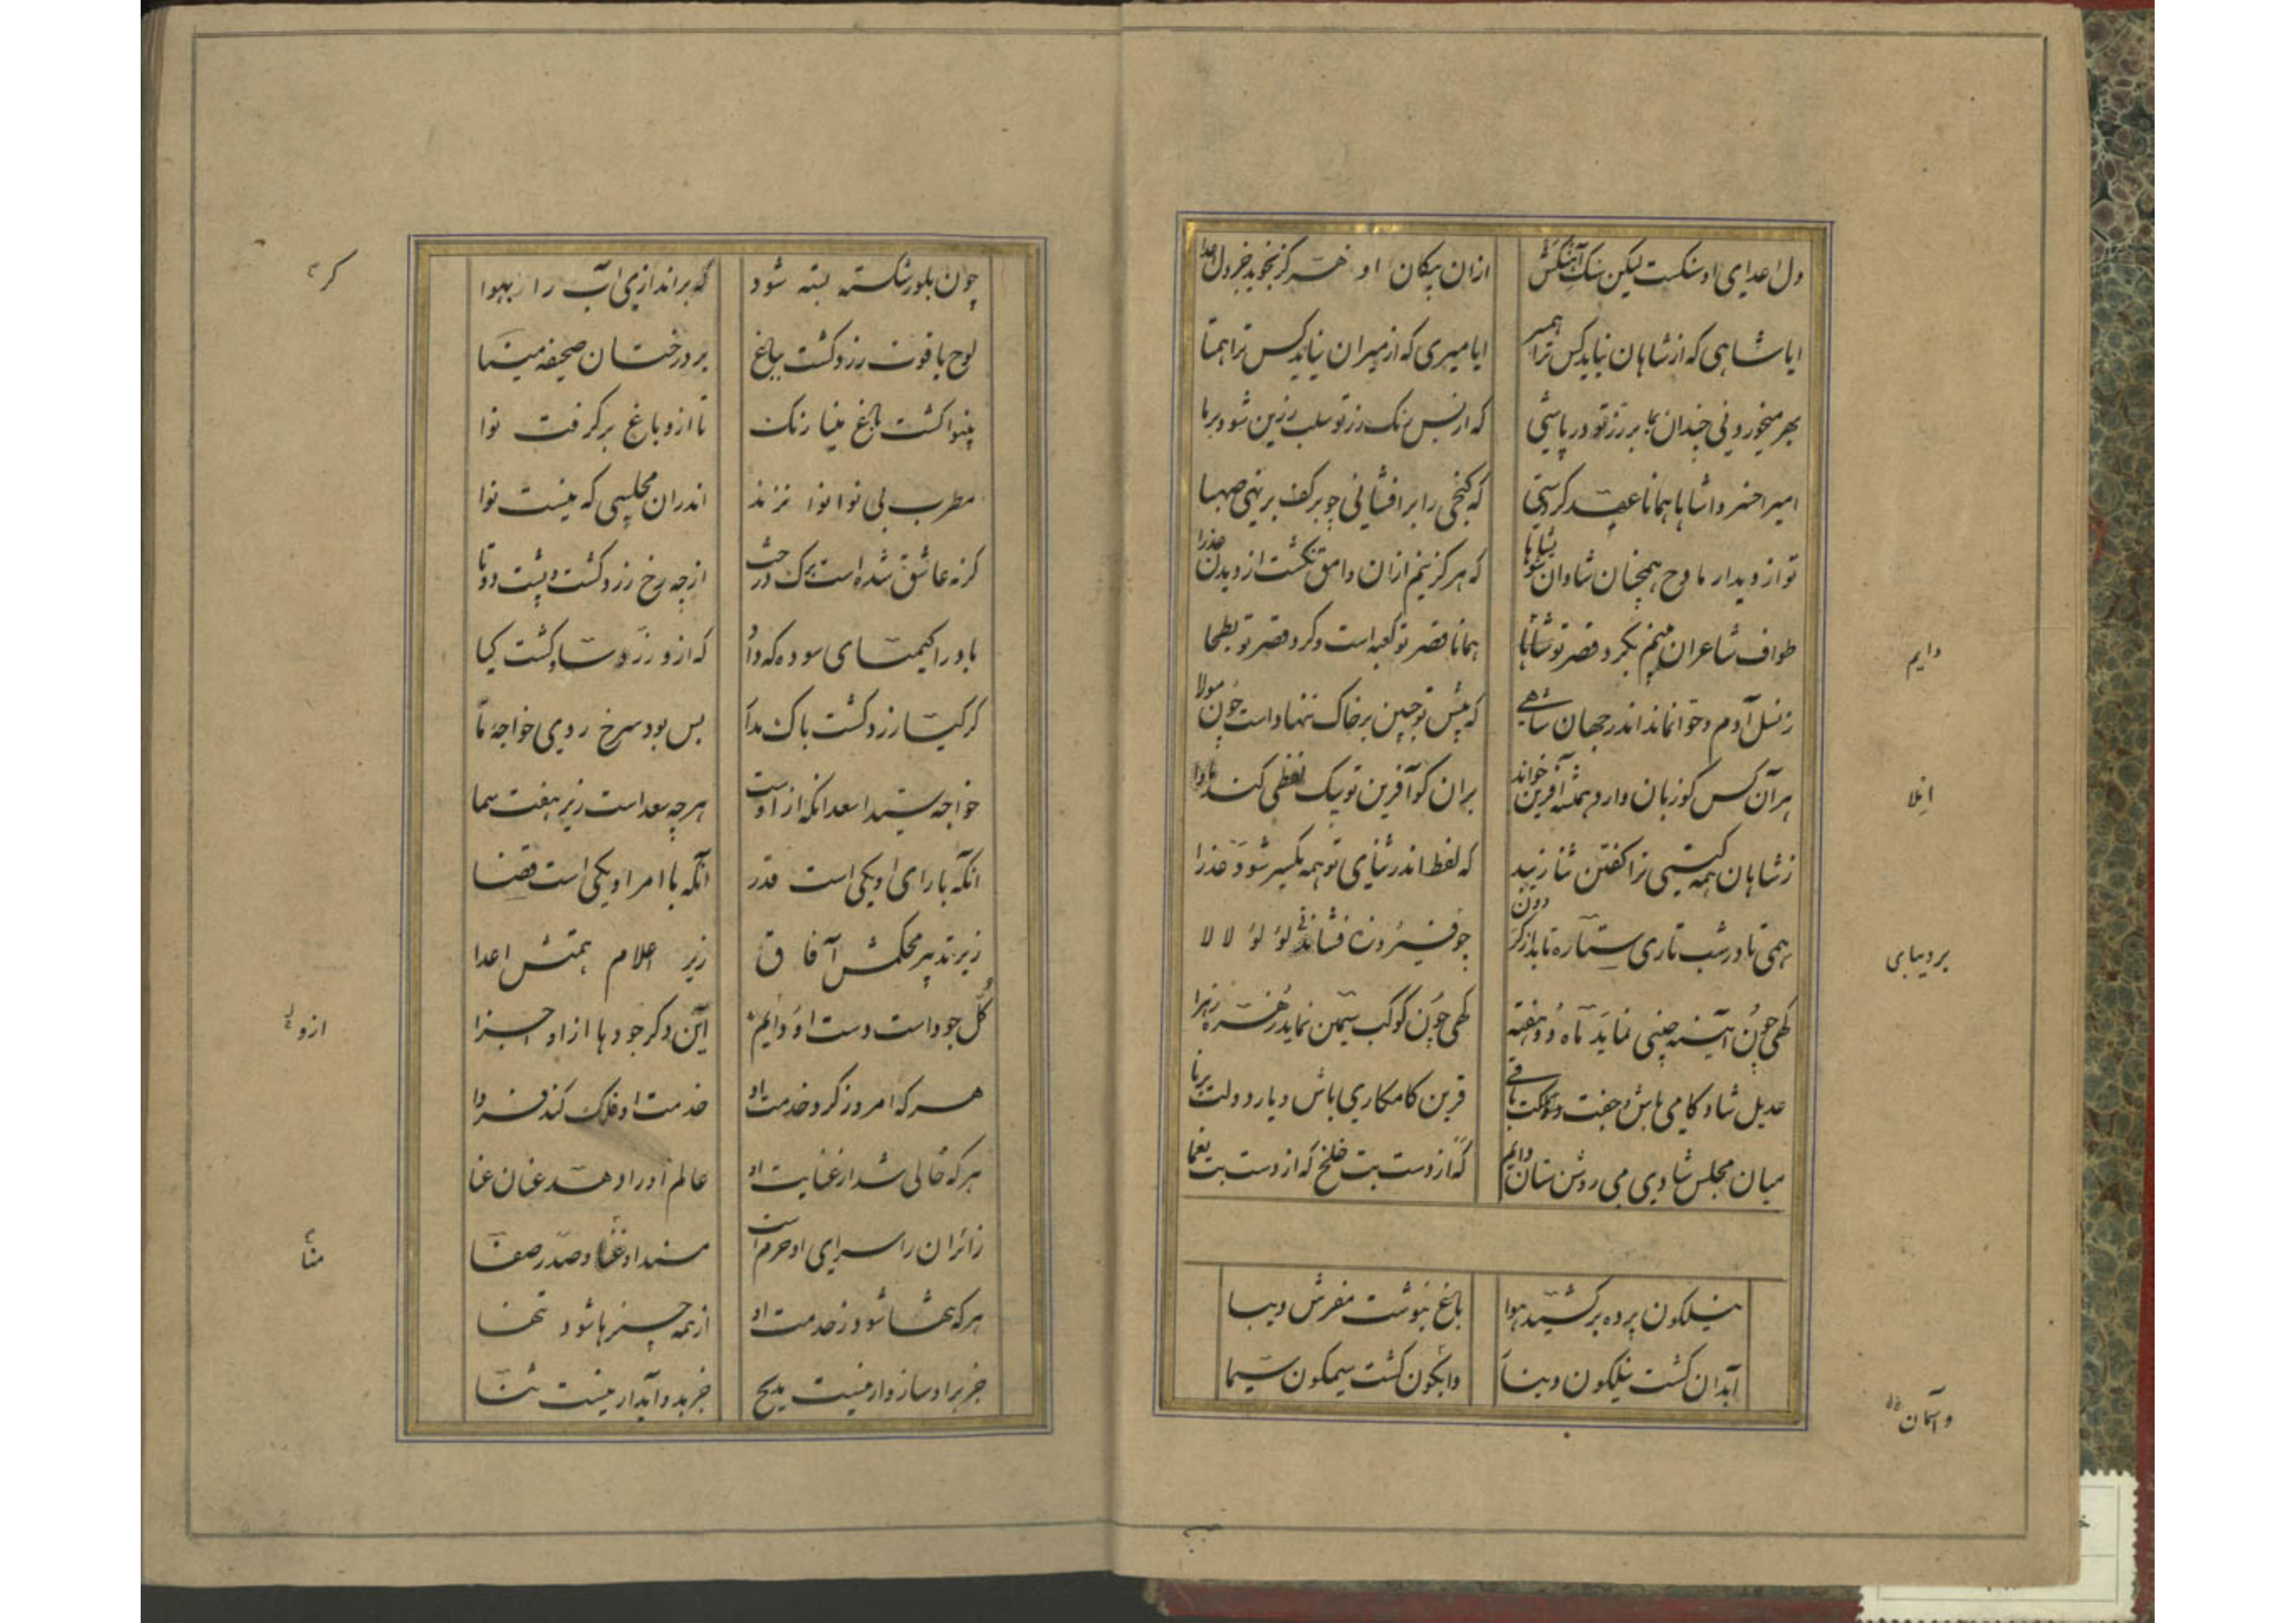 دل اعدای او سنکست لیکن سنک آهنکش ازان پیکان او هرکز نجوید جز دل اعدا
ایا شاهی که از شاهان نیاید کس ترا همسر ایا میری که از میران نیاید کس ترا همتا
امیرا خسروا شاها همانا عهد کردستی که کنجی را برافشانی چو بر کف برنهی صهبا
تو از دیدار مادح همچنان شادان شوی شاها که هرکز نیم ازان وامق نکشت از دیدن عذرا
طواف شاعران بینم بکرد قصر تو شاها همانا قصر تو کعبه است و کرد قصر تو بطحا
دایم
ز نسل آدم و حوا نماند اندر جهان شاهی که پیش تو جبین بر خاک ننهاد است چون مولا
هر آن کس کو زبان دارد همیشه آفرین خواند بران کو آفرین تو بیک لفظی کند
ز شاهان همه کیتی ترا کفتن ثنا زیبد که لفظ اندر ثنای تو همه یکسر شود غذرا
همی تا در شب تاری ستاره تابد از کردون چو فیروزه فشانده لؤلؤ لالا
بر دیبای
کهی چون آیینه چینی نماید ماه دو هفته کهی چون کوکب سیمین نماید زهره زهرا
عدیل شادکامی باش و جفت مملکت باقی قرین کامکاری باش و یار دولت برنا
میان مجلس شادی می روشن ستان دایم که از دست بت خلخ که از دست بت یغما
نیلکون پرده برکشید هوا باغ بنوشت مفرش دیبا
آبدان کشت نیلکون دیبا وابکون کشت سیمکون سیما
و آسمان
چون بلور شکسته بسته شود که براندازی آب را از بهوا
کر
لوح یاقوت زرد کشت بباغ بر درختان صحیفه مینا
بینوا کشت باغ مینا رنک تا ازو باغ برکرفت نوا
مطرب بی نوا نوا نزند اندران مجلسی که نیست نوا
کرنه عاشق شده است برک درخت از چه رخ زرد کشت و پشت دوتا
باد را کیمیای سوده که داد که ازو زر ساو کشت کیا
کر کیا زرد کشت باک مدار بس بود سرخ روی خواجه ما
خواجه سید اسعد انکه ازوست هر چه سعد است زیر هفت سما
آنکه با رای او یکی است قدر آنکه با امر او یکی است قضا
زیر تدبیر محکمش آفاق زیر اعلام همتش اعدا
کل جود است دست او دایم این دکر جودها از او اجزا
ازو
هر که امروز کرد خدمت او خدمت او فلک کند فردا
هر که خالی شد از عنایت او عالم اورا دهد عنان عنا
زائران را سرای او حرم است مسند او و صدر صفا
منا
هر که تنها شود ز خدمت او از همه چیزها شود تنها
جز براو سازوار نیست مدیح جز بدو آبدار نیست ثنا